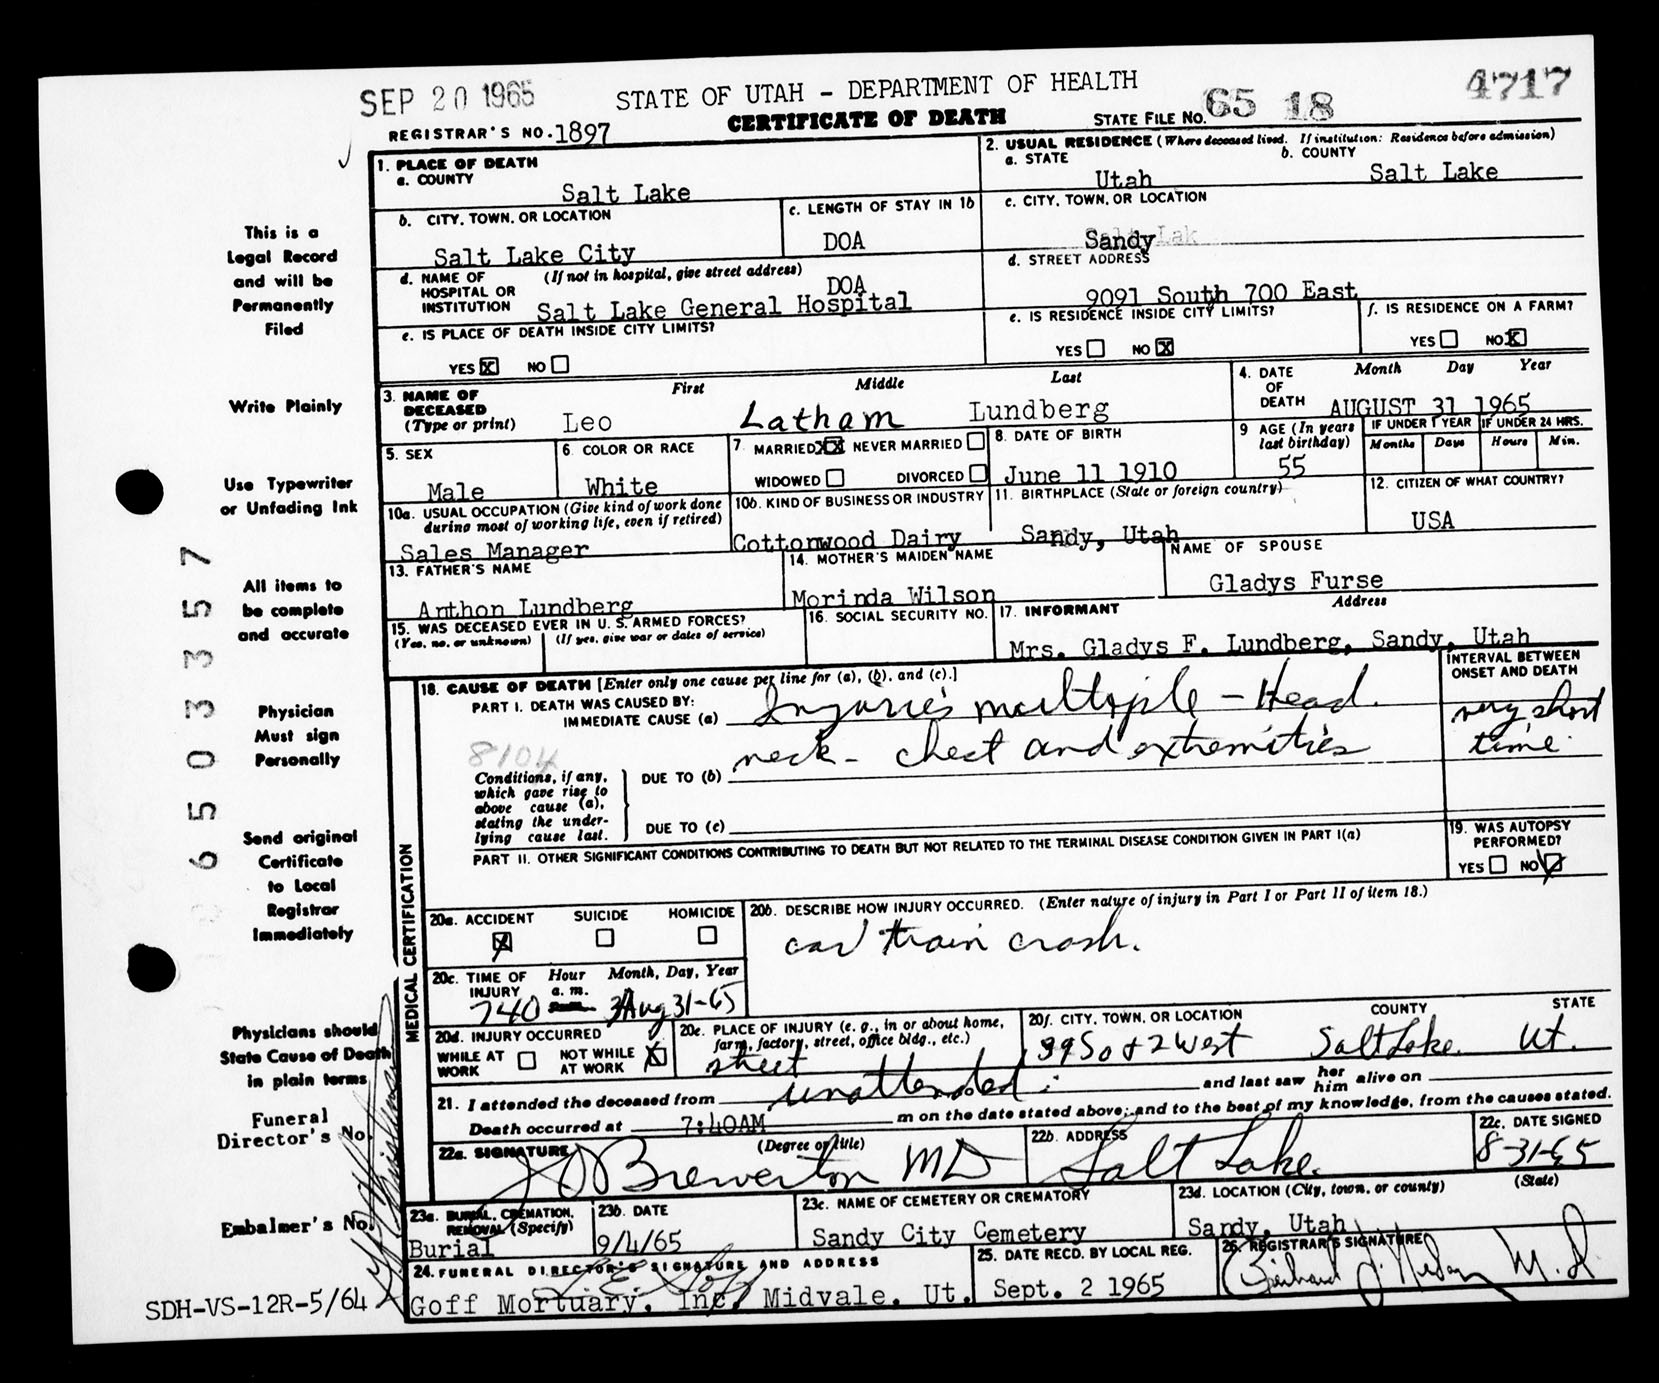 SEP 20 1965
STATE OF UTAH - DEPARTMENT OF HEALTH
4717
REGISTRAR'S NO. 1897
CERTIFICATE OF DEATH
STATE FILE NO. 65 18
1. PLACE OF DEATH
a. COUNTY
Salt Lake
2. USUAL RESIDENCE (Where deceased lived. If institution: Residence before admission)
a. STATE
Utah
b. COUNTY
Salt Lake
b. CITY, TOWN, OR LOCATION
Salt Lake City
c. LENGTH OF STAY IN 1b
DOA
c. CITY, TOWN, OR LOCATION
Sandy
d. NAME OF HOSPITAL OR INSTITUTION
(If not in hospital, give street address)
DOA
Salt Lake General Hospital
d. STREET ADDRESS
9091 South 700 East
e. IS PLACE OF DEATH INSIDE CITY LIMITS?
YES X NO
e. IS RESIDENCE INSIDE CITY LIMITS?
YES NO X
f. IS RESIDENCE ON A FARM?
YES NO X
3. NAME OF DECEASED
(Type or print)
First Middle Last
Leo Latham Lundberg
4. DATE OF DEATH
Month Day Year
AUGUST 31 1965
5. SEX
Male
6. COLOR OR RACE
White
7. MARRIED XX NEVER MARRIED
WIDOWED DIVORCED
8. DATE OF BIRTH
June 11 1910
9 AGE (In years last birthday)
55
IF UNDER 1 YEAR
Months Days
IF UNDER 24 HRS.
Hours Min.
10a. USUAL OCCUPATION (Give kind of work done during most of working life, even if retired)
Sales Manager
10b. KIND OF BUSINESS OR INDUSTRY
Cottonwood Dairy
11. BIRTHPLACE (State or foreign country)
Sandy, Utah
12. CITIZEN OF WHAT COUNTRY?
USA
13. FATHER'S NAME
Anthon Lundberg
14. MOTHER'S MAIDEN NAME
Morinda Wilson
NAME OF SPOUSE
Gladys Furse
15. WAS DECEASED EVER IN U. S. ARMED FORCES?
(Yes, no, or unknown) (If yes, give war or dates of service)
16. SOCIAL SECURITY NO.
17. INFORMANT
Address
Mrs. Gladys F. Lundberg, Sandy, Utah
MEDICAL CERTIFICATION
18. CAUSE OF DEATH [Enter only one cause per line for (a), (b), and (c).]
INTERVAL BETWEEN ONSET AND DEATH
PART I. DEATH WAS CAUSED BY:
IMMEDIATE CAUSE (a) Injuries multiple - Head.
neck - chest and extremities
very short
time.
8104
Conditions, if any, which gave rise to above cause (a), stating the underlying cause last.
DUE TO (b)
DUE TO (c)
PART II. OTHER SIGNIFICANT CONDITIONS CONTRIBUTING TO DEATH BUT NOT RELATED TO THE TERMINAL DISEASE CONDITION GIVEN IN PART I(a)
19. WAS AUTOPSY PERFORMED?
YES NO
20a. ACCIDENT SUICIDE HOMICIDE
X
20b. DESCRIBE HOW INJURY OCCURRED. (Enter nature of injury in Part I or Part II of item 18.)
car train crash.
20c. TIME OF INJURY
Hour Month, Day, Year
a. m.
740 Aug 31-65
20d. INJURY OCCURRED
WHILE AT WORK NOT WHILE AT WORK X
20e. PLACE OF INJURY (e. g., in or about home, farm, factory, street, office bldg., etc.)
street
20f. CITY, TOWN, OR LOCATION COUNTY STATE
39 So & 2 West Salt Lake. Ut.
21. I attended the deceased from unattended. and last saw her him alive on
Death occurred at 7:40AM m on the date stated above; and to the best of my knowledge, from the causes stated.
22a. SIGNATURE (Degree or title)
Brewerton MD
22b. ADDRESS
Salt Lake.
22c. DATE SIGNED
8-31-65
23a. BURIAL, CREMATION, REMOVAL (Specify)
Burial
23b. DATE
9/4/65
23c. NAME OF CEMETERY OR CREMATORY
Sandy City Cemetery
23d. LOCATION (City, town, or county) (State)
Sandy, Utah
24. FUNERAL DIRECTOR'S SIGNATURE AND ADDRESS
Goff Mortuary, Inc. Midvale, Ut.
25. DATE RECD. BY LOCAL REG.
Sept. 2 1965
26. REGISTRAR'S SIGNATURE
M.D.
This is a
Legal Record
and will be
Permanently
Filed
Write Plainly
Use Typewriter
or Unfading Ink
All items to
be complete
and accurate
Physician
Must sign
Personally
Send original
Certificate
to Local
Registrar
Immediately
Physicians should
State Cause of Death
in plain terms
Funeral
Director's No.
Embalmer's No.
65033357
SDH-VS-12R-5/64